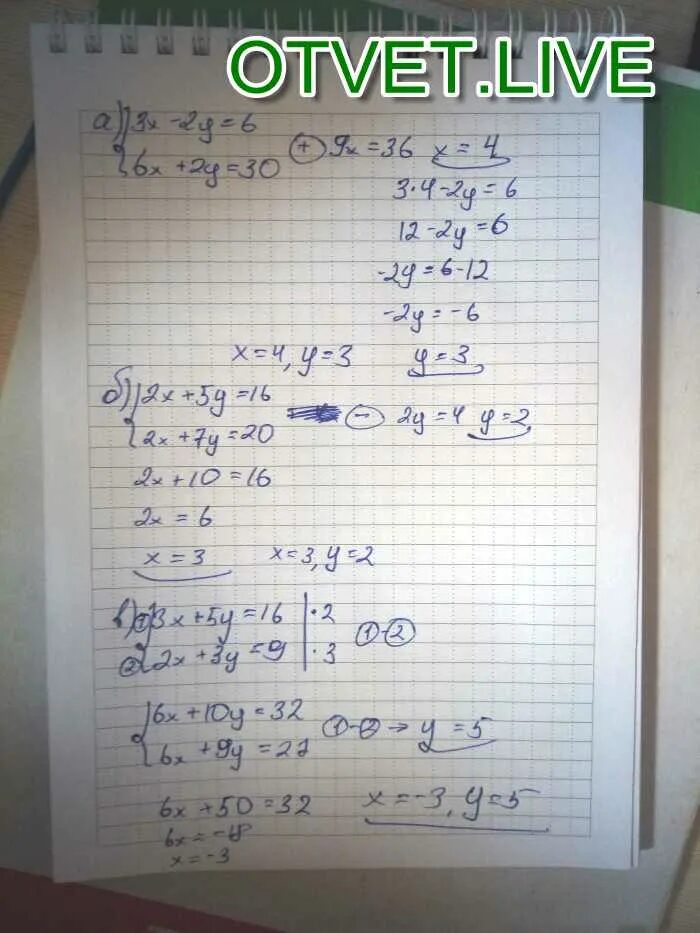 OTVET.LIVE
а) 3x - 2y = 6
6x + 2y = 30 (+) 9x = 36 x = 4
3·4 - 2y = 6
12 - 2y = 6
-2y = 6 - 12
-2y = -6
x = 4, y = 3 y = 3
б) 2x + 5y = 16
2x + 7y = 20 (-) 2y = 4 y = 2
2x + 10 = 16
2x = 6
x = 3 x = 3, y = 2
в) ① 3x + 5y = 16 | ·2
② 2x + 3y = 9 | ·3 ① - ②
6x + 10y = 32
6x + 9y = 27 ① - ② → y = 5
6x + 50 = 32 x = -3, y = 5
6x = -18
x = -3